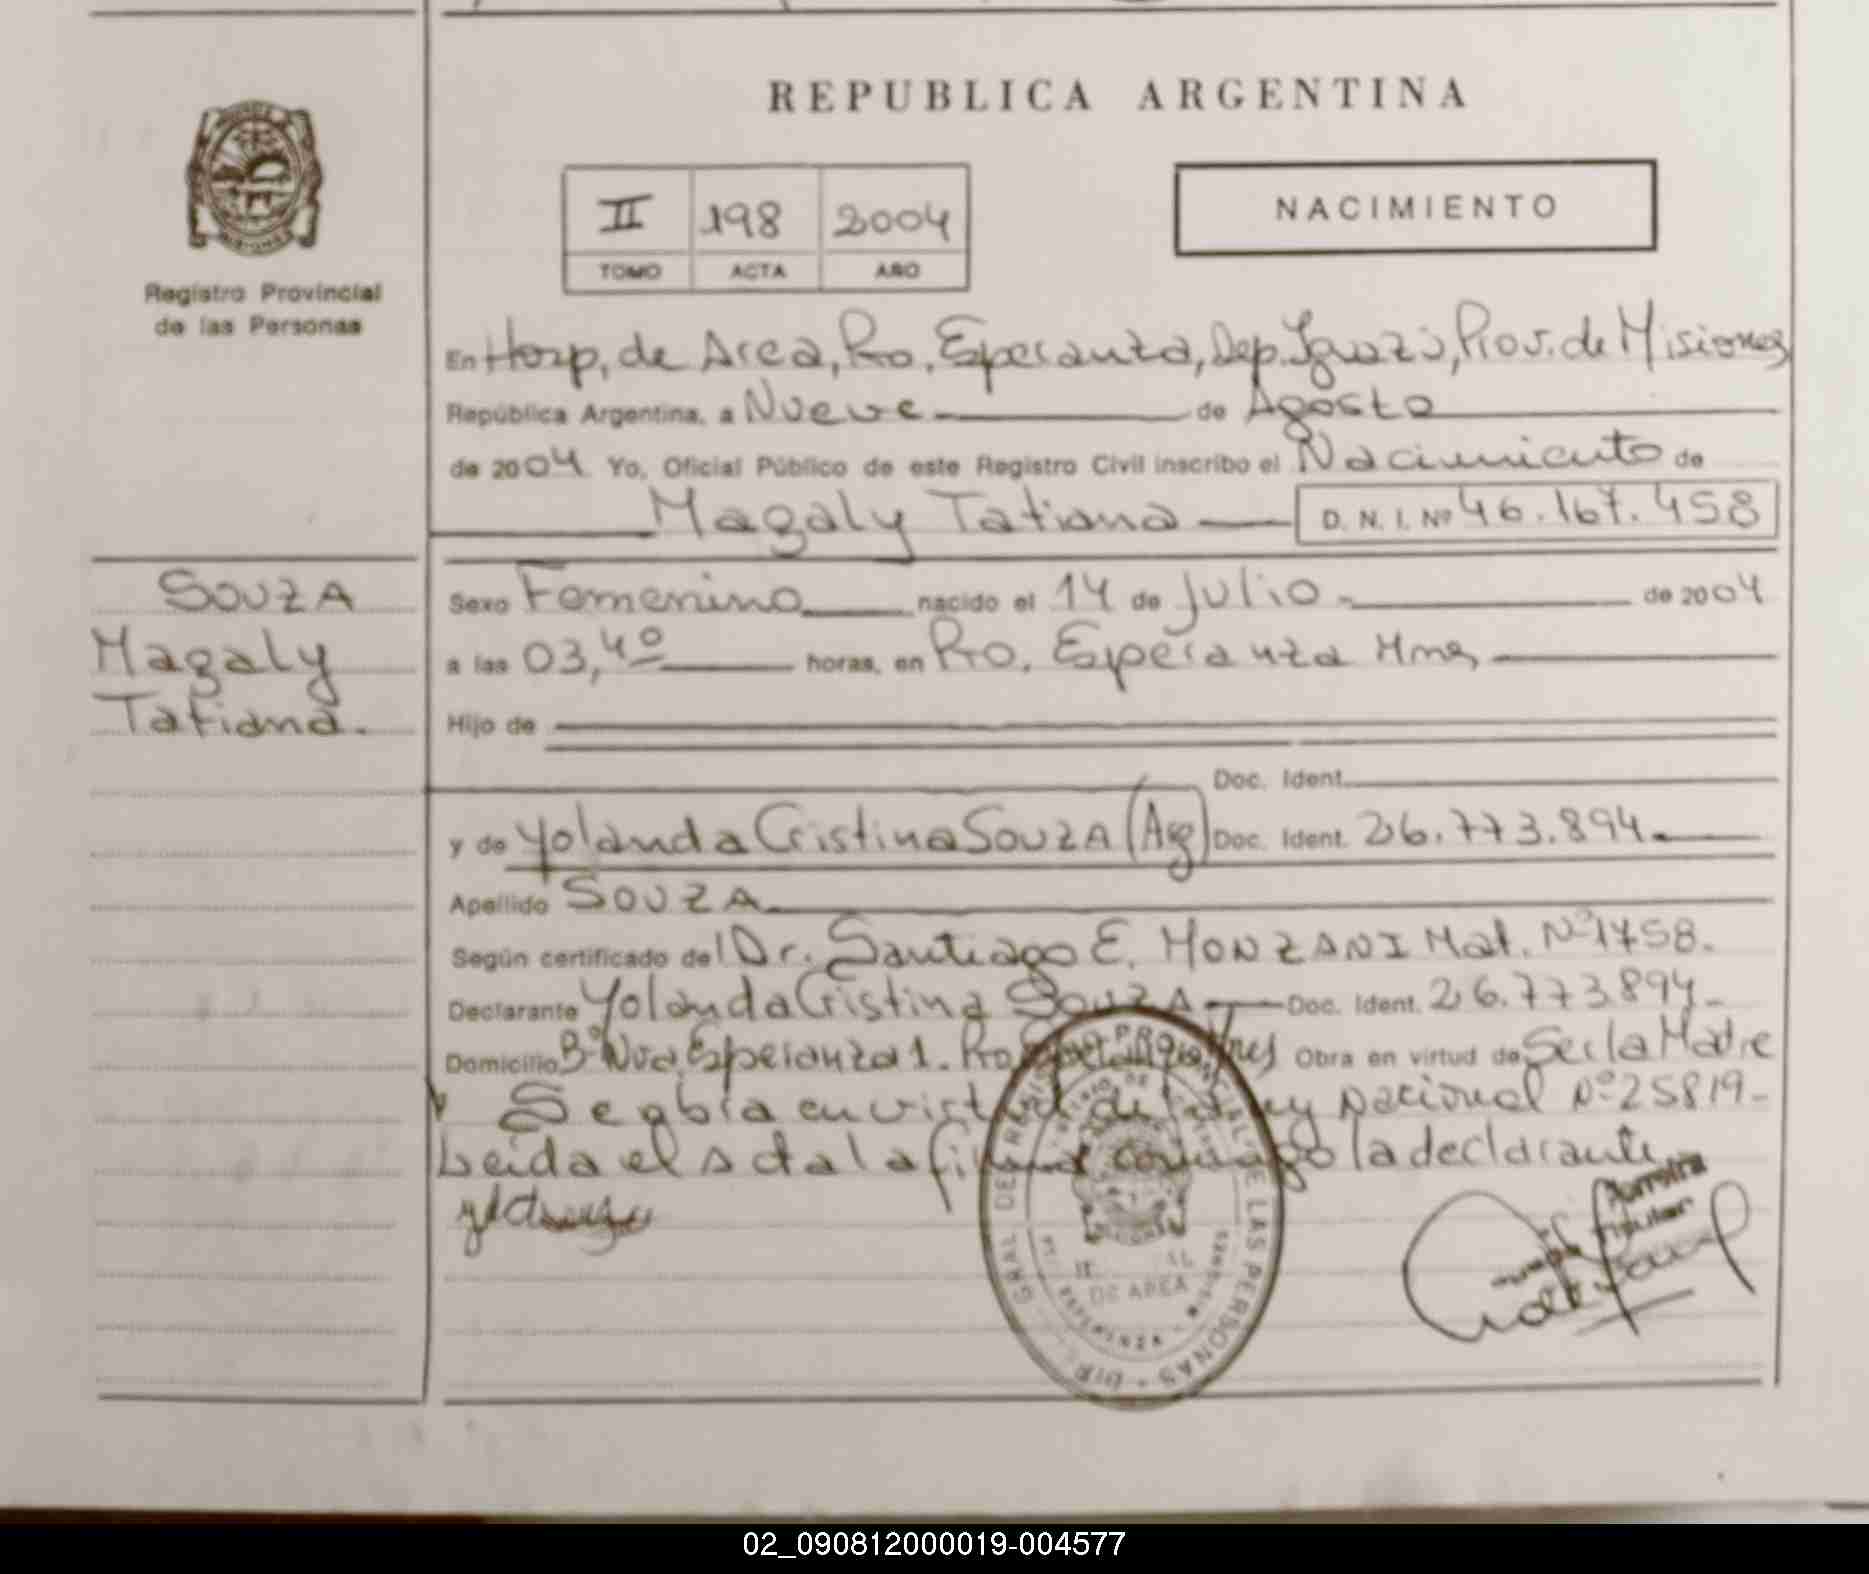 REPUBLICA ARGENTINA
II 198 2004
TOMO ACTA AÑO
NACIMIENTO
Registro Provincial
de las Personas
En Hosp. de Area, Pto. Esperanza, Dep. Iguazú, Prov. de Misiones
República Argentina, a Nueve de Agosto
de 2004 Yo, Oficial Público de este Registro Civil inscribo el Nacimiento de
Magaly Tatiana D. N. I. Nº 46.167.458
SOUZA
Magaly
Tatiana.
Sexo Femenino nacido el 14 de Julio de 2004
a las 03,40 horas, en Pto. Esperanza Mnes
Hijo de
Doc. Ident.
y de Yolanda Cristina SOUZA (Arg) Doc. Ident. 26.773.894
Apellido SOUZA
Según certificado del Dr. Santiago E. MONZANI Mat. Nº 1758.
Declarante Yolanda Cristina SOUZA Doc. Ident. 26.773.894
Domicilio Bº Nva. Esperanza 1. Pto. Mnes Obra en virtud de Ser la Madre
Se abía en virtud de la Ley nacional Nº 25819-
Leída el acta la firma conmigo la declarante
DIR. GRAL. DE REGISTRO PROVINCIAL DE LAS PERSONAS
DE AREA
ESPERANZA - MISIONES
Titular
02_090812000019-004577